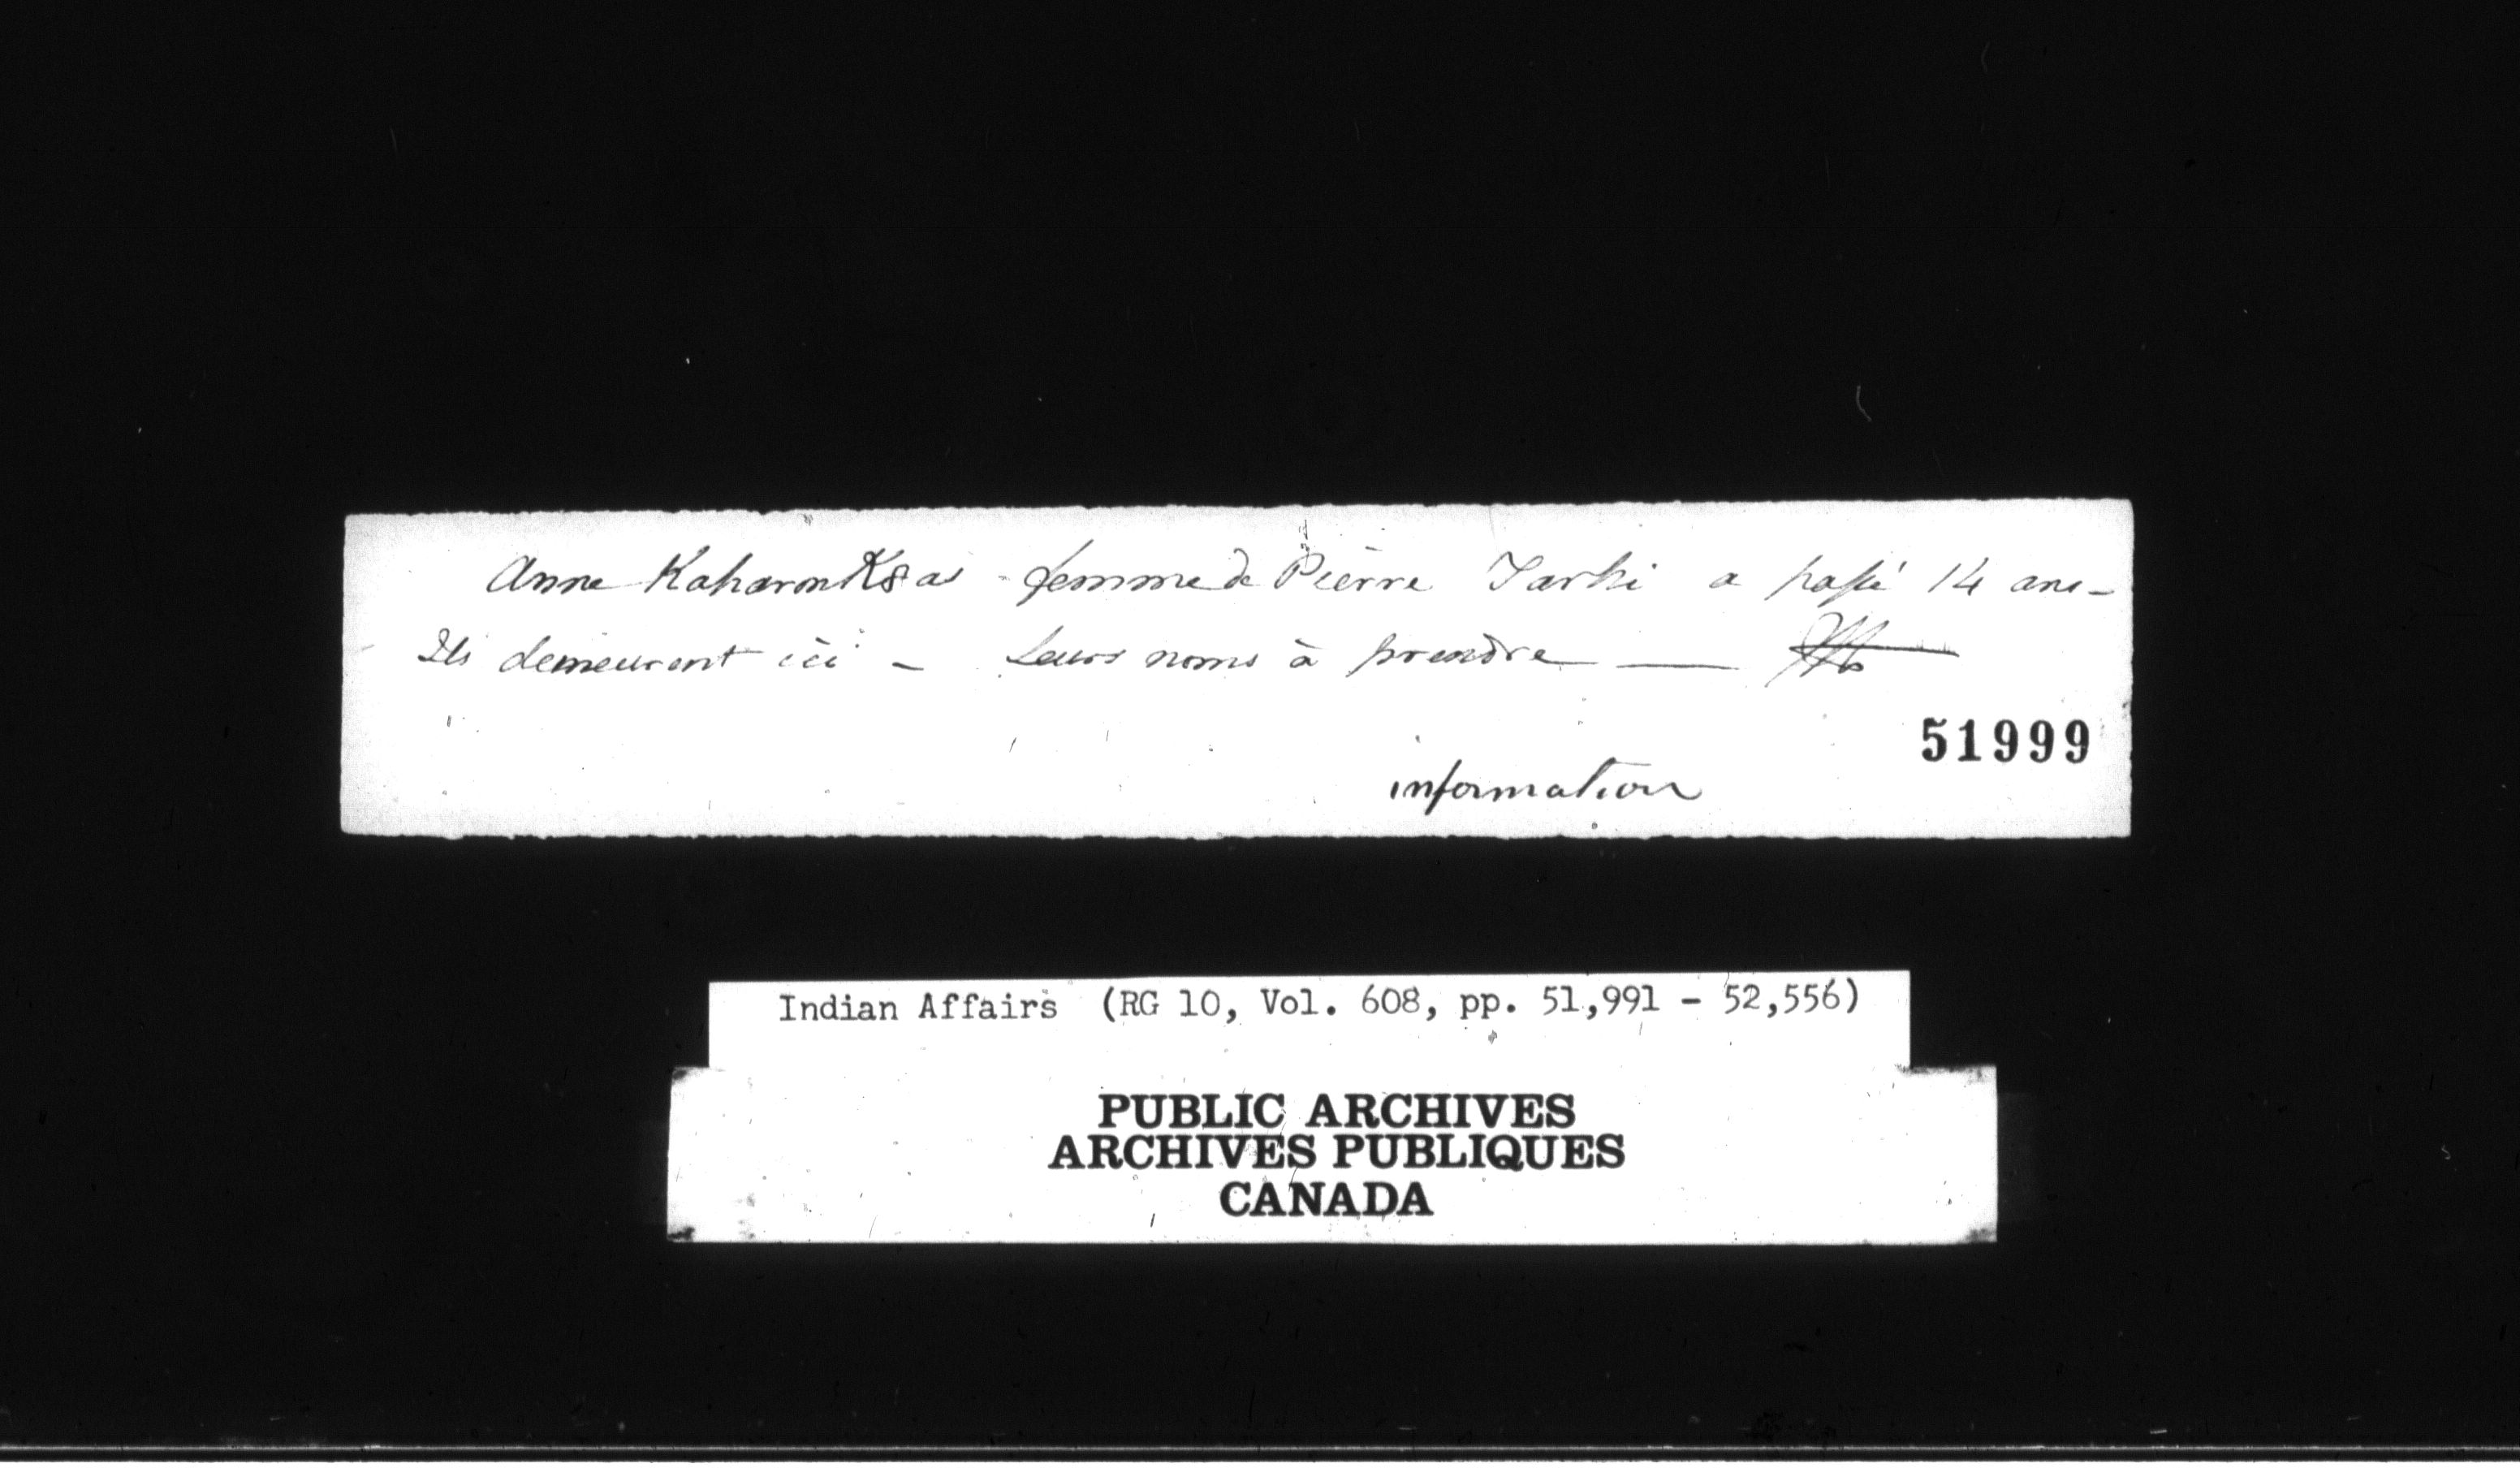 Anne KaharonK8as - femme de Pierre Tarhi a passé 14 ans -
Ils demeurent ici - Leurs noms à prendre —
51999
information
Indian Affairs (RG 10, Vol. 608, pp. 51,991 - 52,556)
PUBLIC ARCHIVES
ARCHIVES PUBLIQUES
CANADA